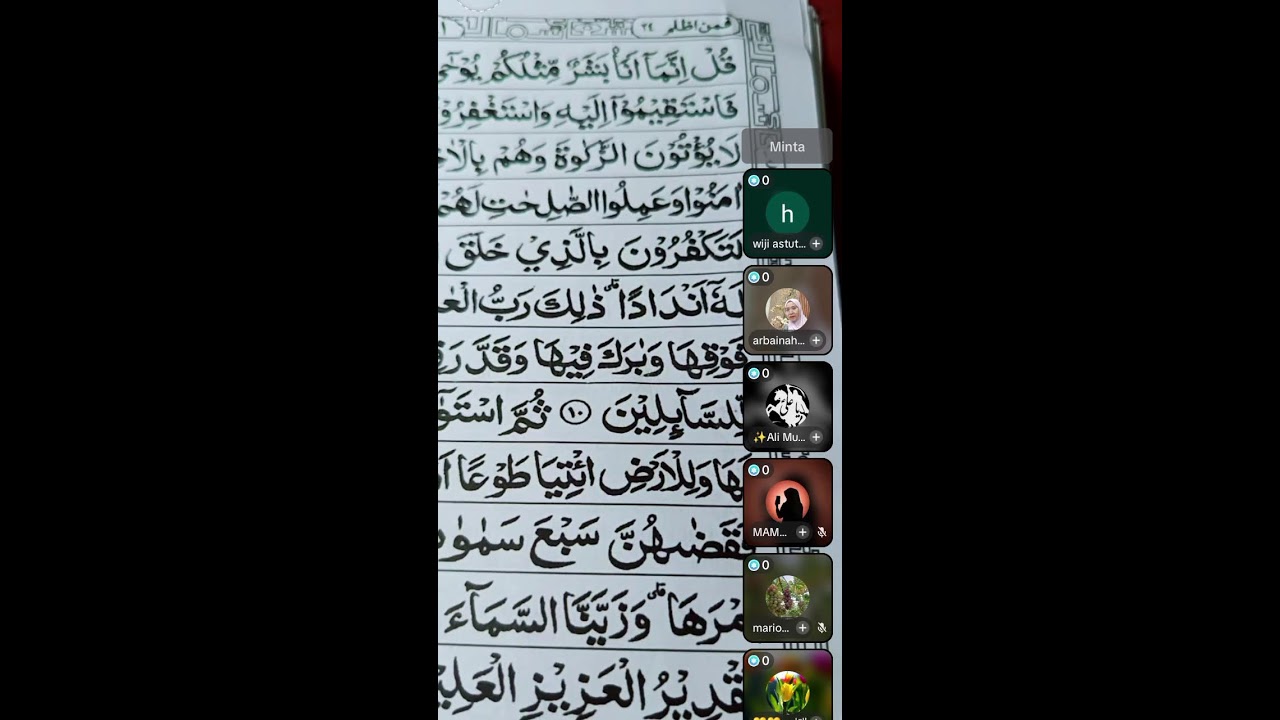 فمن اظلم ٢٤
قُلْ اِنَّمَآ اَنَا۠ بَشَرٌ مِّثْلُكُمْ يُوْحٰٓى
فَاسْتَقِيْمُوْٓا اِلَيْهِ وَاسْتَغْفِرُوْ
لَا يُؤْتُوْنَ الزَّكٰوةَ وَهُمْ بِالْاٰخِ
اٰمَنُوْا وَعَمِلُوا الصّٰلِحٰتِ لَهُمْ
لَتَكْفُرُوْنَ بِالَّذِيْ خَلَقَ
لَهٗٓ اَنْدَادًا ۗ ذٰلِكَ رَبُّ الْعٰ
فَوْقِهَا وَبٰرَكَ فِيْهَا وَقَدَّرَ فِ
لِّلسَّآىِٕلِيْنَ ١٠ ثُمَّ اسْتَوٰ
لَهَا وَلِلْاَرْضِ ائْتِيَا طَوْعًا اَ
فَقَضٰىهُنَّ سَبْعَ سَمٰوٰ
مْرَهَا ۗ وَزَيَّنَّا السَّمَاۤءَ
تَقْدِيْرُ الْعَزِيْزِ الْعَلِيْ
Minta
0
h
wiji astut...
0
arbainah...
0
✨Ali Mu...
0
MAM...
0
mario...
0